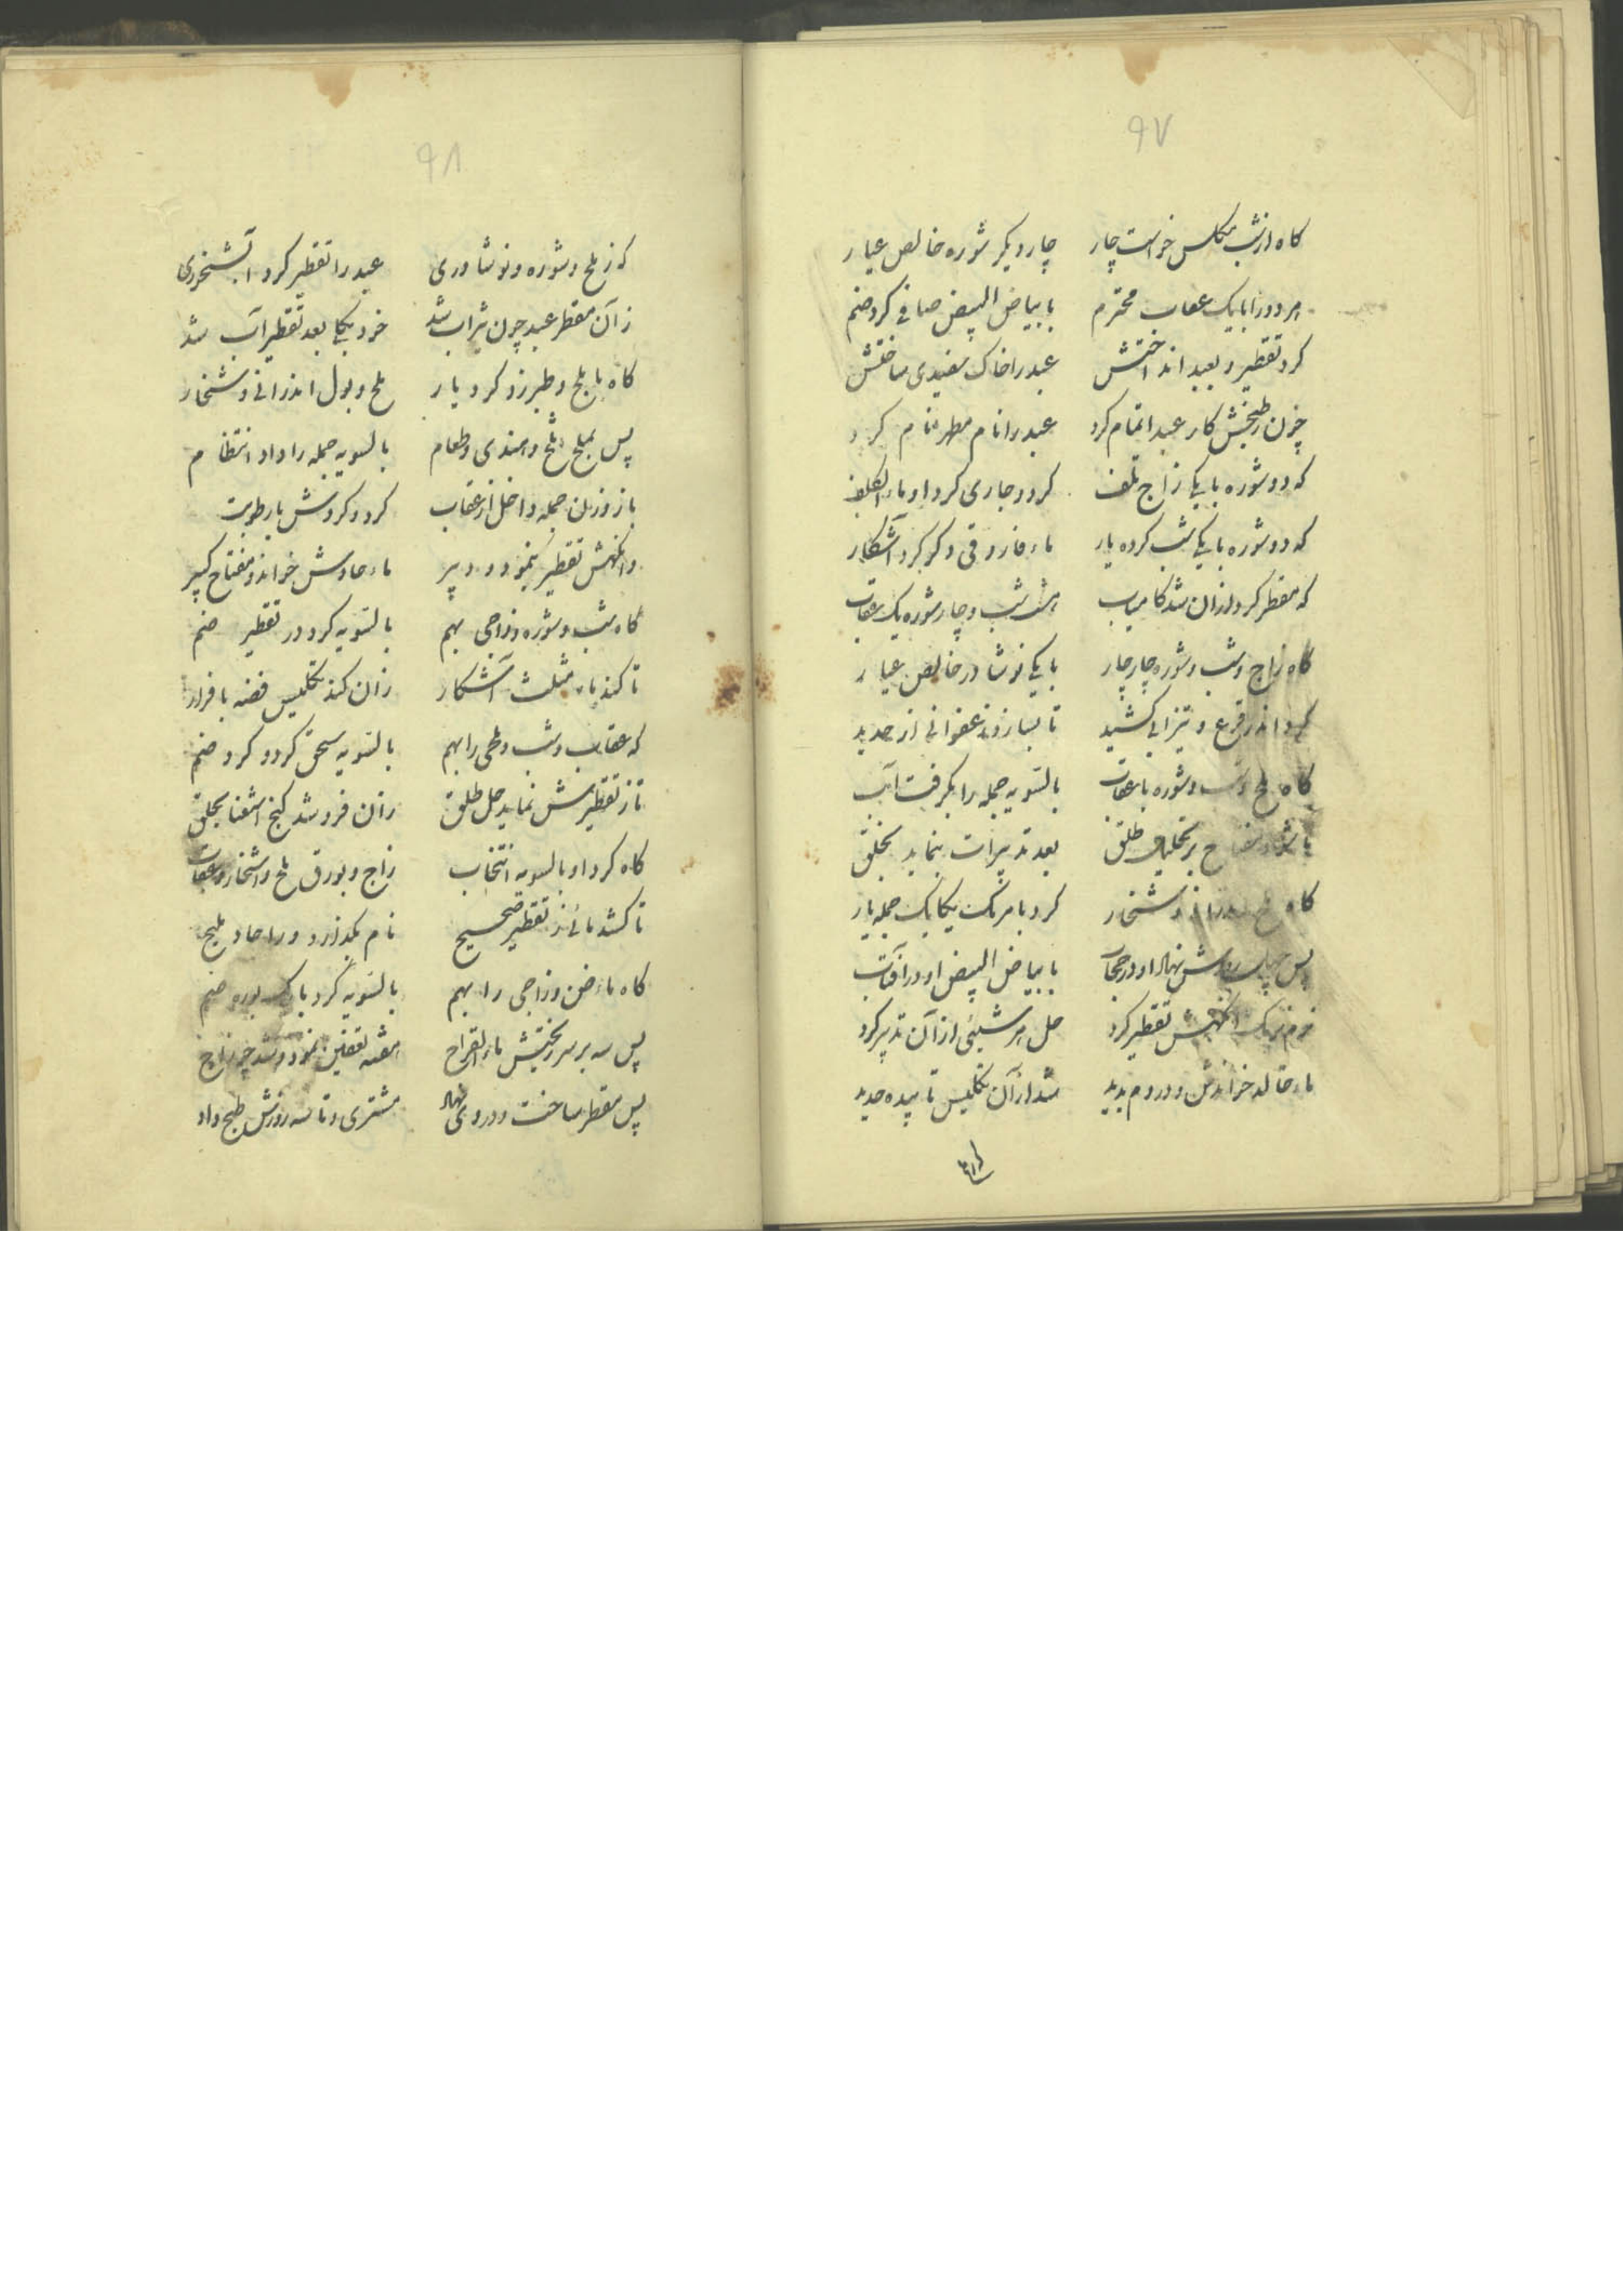 ۹۷
کاه از شب مکلس خواست چار چار دیگر شوره خالص عیار
هر دو را با یک عقاب محترم با بیاض البیض صافی کرد ضم
کرد تقطیر و بعبد انداختش عبد را خاک سفیدی ساختش
چون طبخش کار عبد اتمام کرد عبد را نام مطهر نام کرد
که دو شوره با یکی زاج تلف کرد و جاری کرد او ماء
که دو شوره با یکی شب کرده یار ماء فاروقی دگر کرد آشکار
که مقطر کرد از آن شد کامیاب هشت شب و چار شوره یک عقاب
کاه زاج و شب و شوره چار چار با یکی نوشادر خالص عیار
کرد اندر قرع و تیزابی کشید تا بسازد زعفرانی از حدید
کاه ملح و شب و شوره با عقاب بالتسویه جمله را بگرفت آب
بر تحلیل طلق بعد تدبیرات بنماید بخلق
کاه ملح و شخار کرد با هر یک یکایک جمله یار
پس نهاد او در حجاب با بیاض البیض او در آفتاب
نرم نرمک تقطیر کرد حل هر شیئی از آن تدبیر کرد
ماء خالد خواندش و در وم بدید شد از آن تکلیس تا پیده حدید
۹۸
که ز ملح و شوره و نوشادری عبد را تقطیر کرد
زآن مقطر عبد چون شراب شد خرد یکجا بعد تقطیر آب شد
کاه با ملح و طبرزد کرد یار ملح و بول اندرانی و شخار
پس بملح تلخ و هندی و طعام بالسویه جمله را داد انتظام
باز وزن جمله داخل از عقاب کرد و کردش با رطوبت
وانگهش تقطیر بنمود و دبیر ماء حادش خواند و مفتاح کبیر
کاه شب و شوره و زاجی بهم بالتسویه کرد در تقطیر ضم
تا کند ماء مثلث آشکار زان کند تکلیس فضه با فرار
که عقاب و شب و ملحی را بهم بالتسویه سحق کرد و کرد ضم
تا ز تقطیرش نماید حل طلق زان فروشد گنج استغنا بخلق
کاه کرد او بالسویه انتخاب زاج و بورق ملح و اشخار و عقاب
تا کشد مائی ز تقطیر صحیح نام بگذارد ورا حاد ملیح
کاه ماء و زاجی را بهم بالتسویه کرد با یک بوره ضم
پس سه بر سر ریختیش ماء القراح هفته تعفین نمود و شد چو زاج
پس مقطر ساخت و در وی نهاد مشتری و تا سه روزش طبخ داد